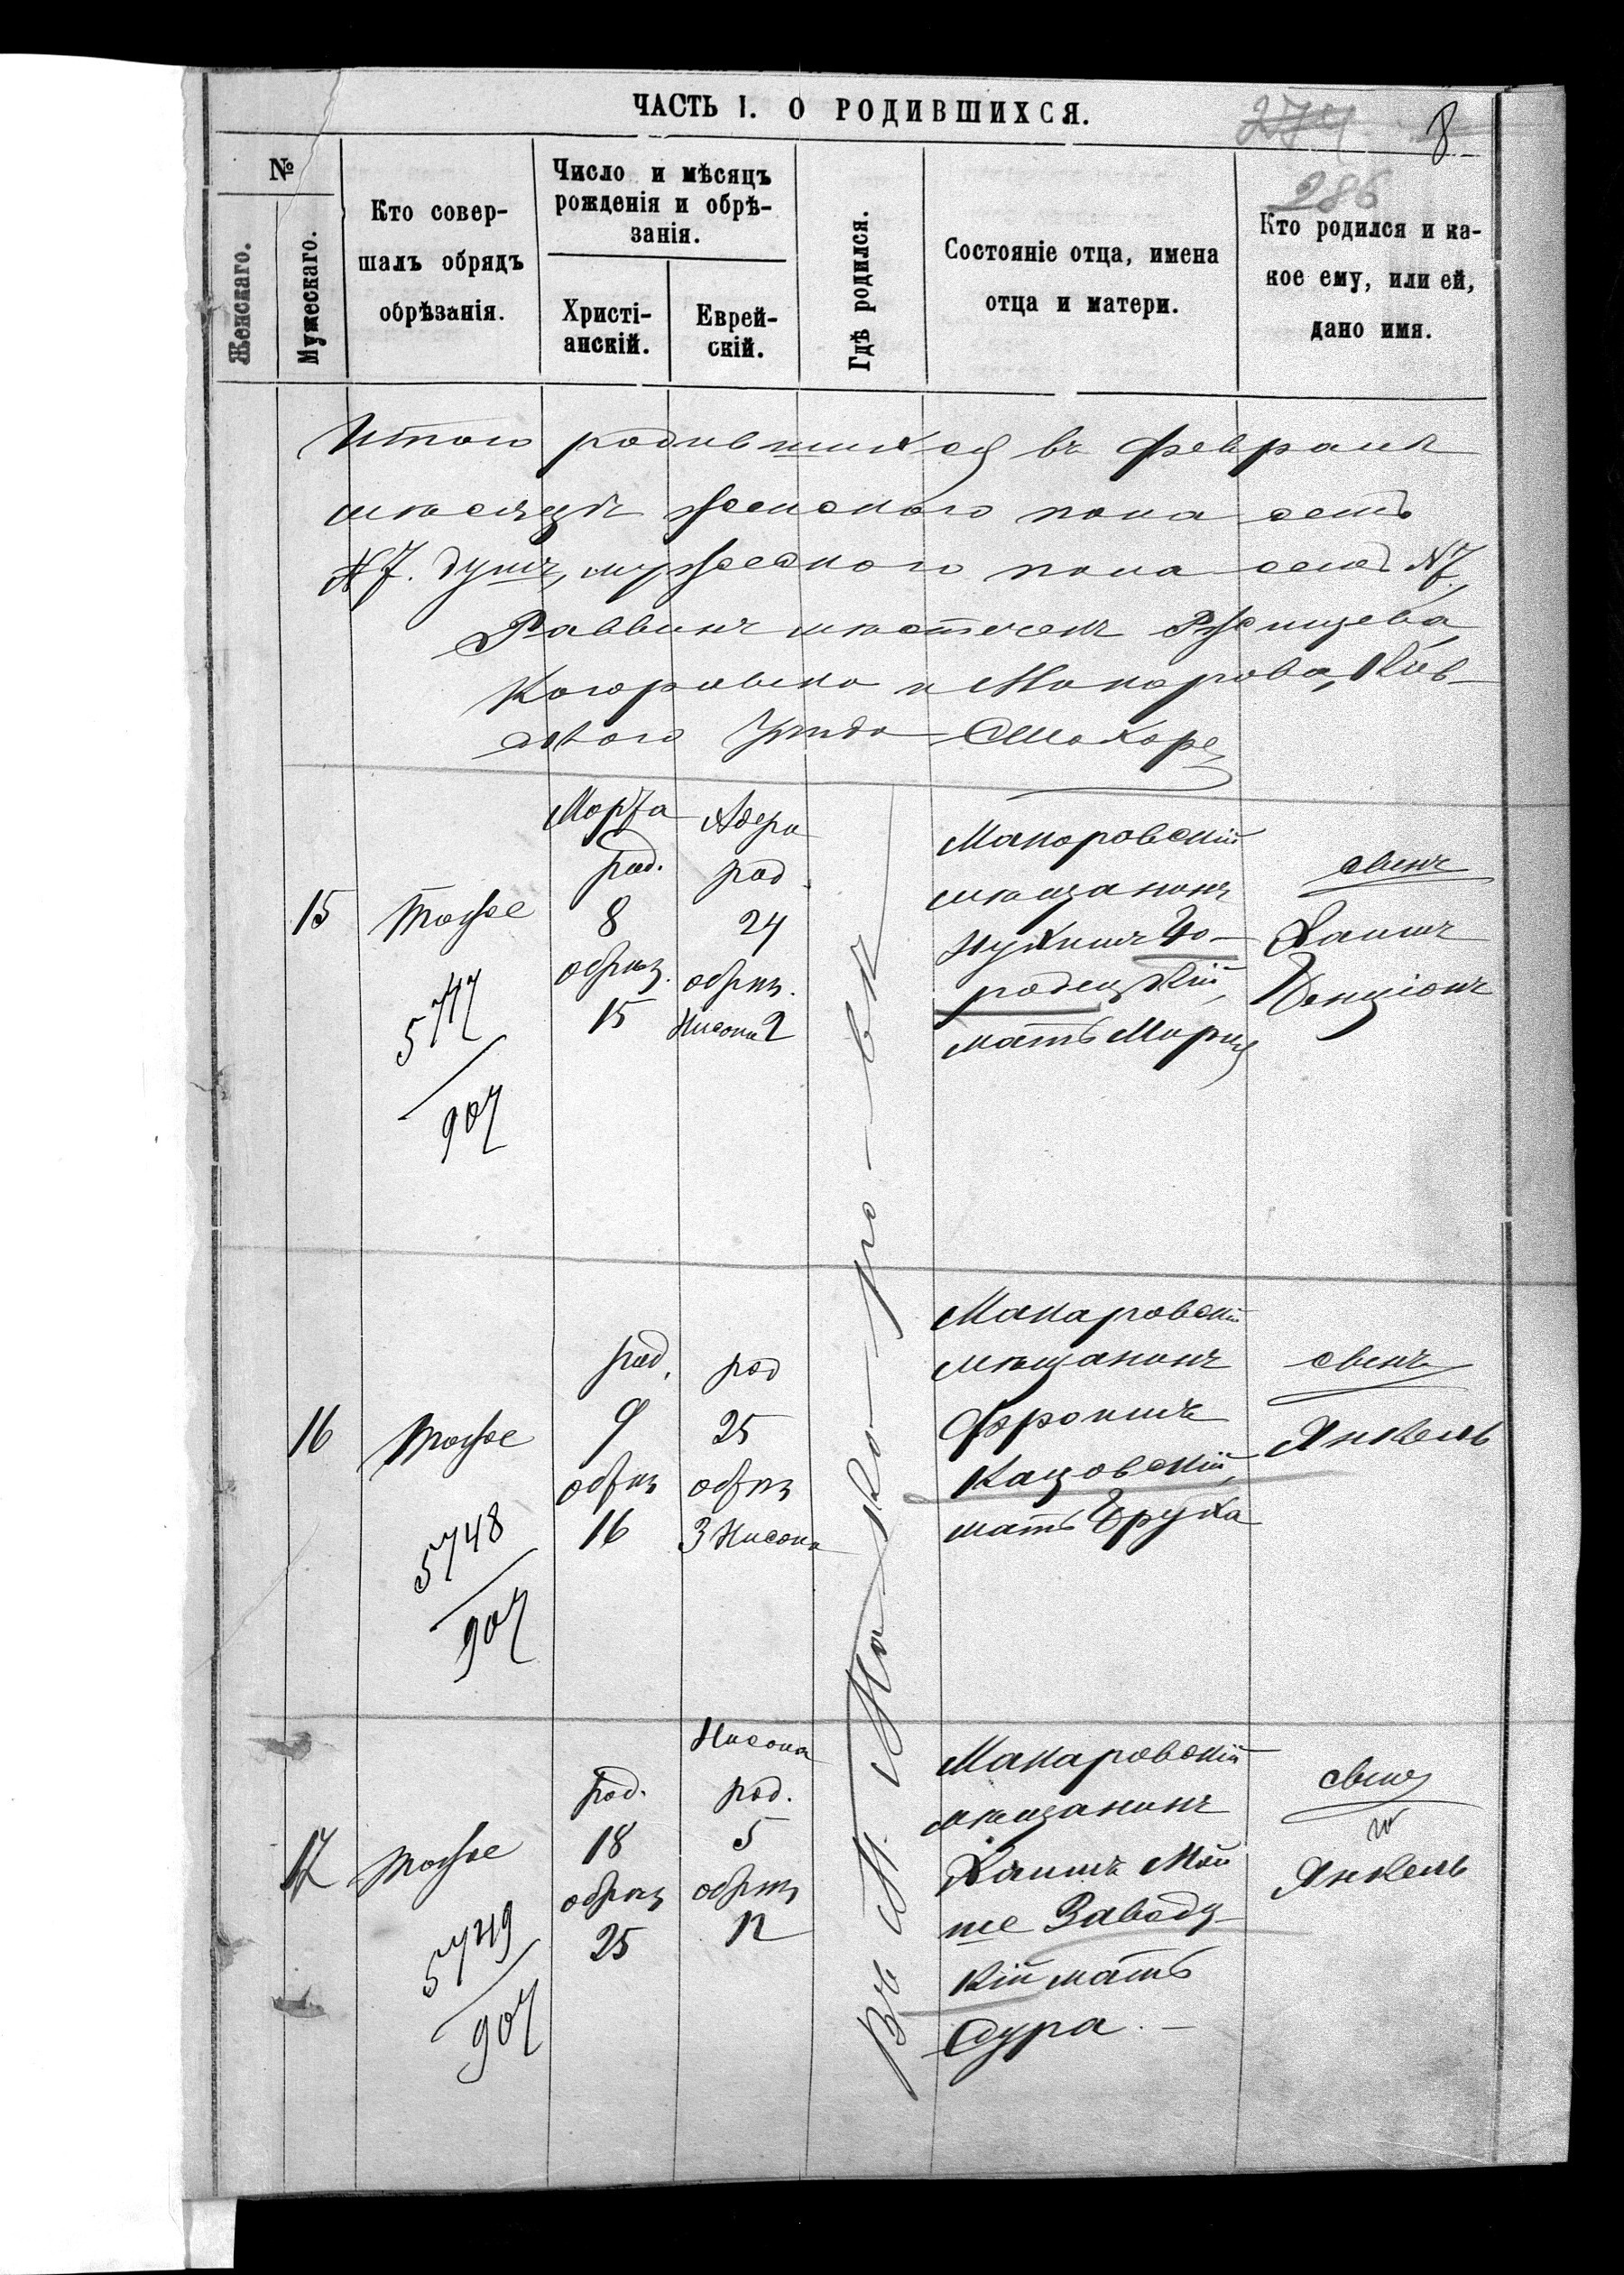 ЧАСТЬ I. О РОДИВШИХСЯ.
274
8
286
№
Женскаго.
Мужескаго.
Кто совер-
шалъ обрядъ
обрѣзанія.
Число и мѣсяцъ
рожденія и обрѣ-
занія.
Христі-
анскій.
Еврей-
скій.
Гдѣ родился.
Состояніе отца, имена
отца и матери.
Кто родился и ка-
кое ему, или ей,
дано имя.
Итого родившихся въ Февралѣ
мѣсяцѣ женскаго пола
№7. душъ, мужескаго пола №7,
Раввинъ мѣстечекъ Ржищева
Кагарлыка и Макарова, Кіев-
скаго Уѣзда
15
Тотже
5747
907
Марта
род.
8
обрѣз.
15
Адера
род
24
обрѣз.
Нисона 2
Макаровскій
мѣщанинъ
Нухимъ Го-
родецкій,
мать Мариа
сынъ
Хаимъ
Бенціонъ
16
Тотже
5748
907
род.
9
обрѣз
16
род
25
обрѣз
3 Нисона
Макаровскій
мѣщанинъ
Фроимъ
Кацовскій,
мать Бруха
сынъ
Янкель
17
Тотже
5749
907
род.
18
обрѣз
25
Нисона
род.
5
обрѣз
12
Макаровскій
мѣщанинъ
Хаимъ Мой
ше Заводц
кій мать
Сура. —
сынъ
Янкель
Въ М. Ма-ка-ро-вѣ